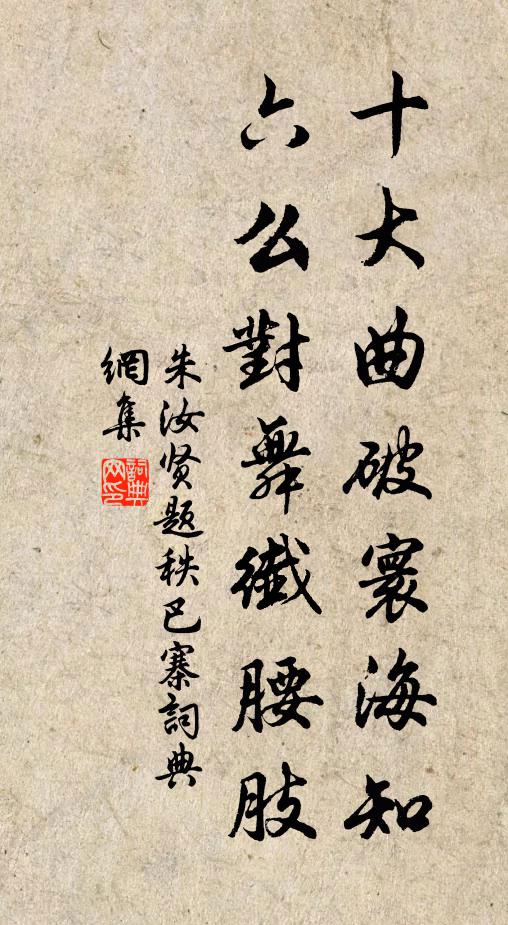 十大曲破寰海知
六么對舞纖腰肢
朱汝贤题秩巴寨詞典
網集
詞典网印